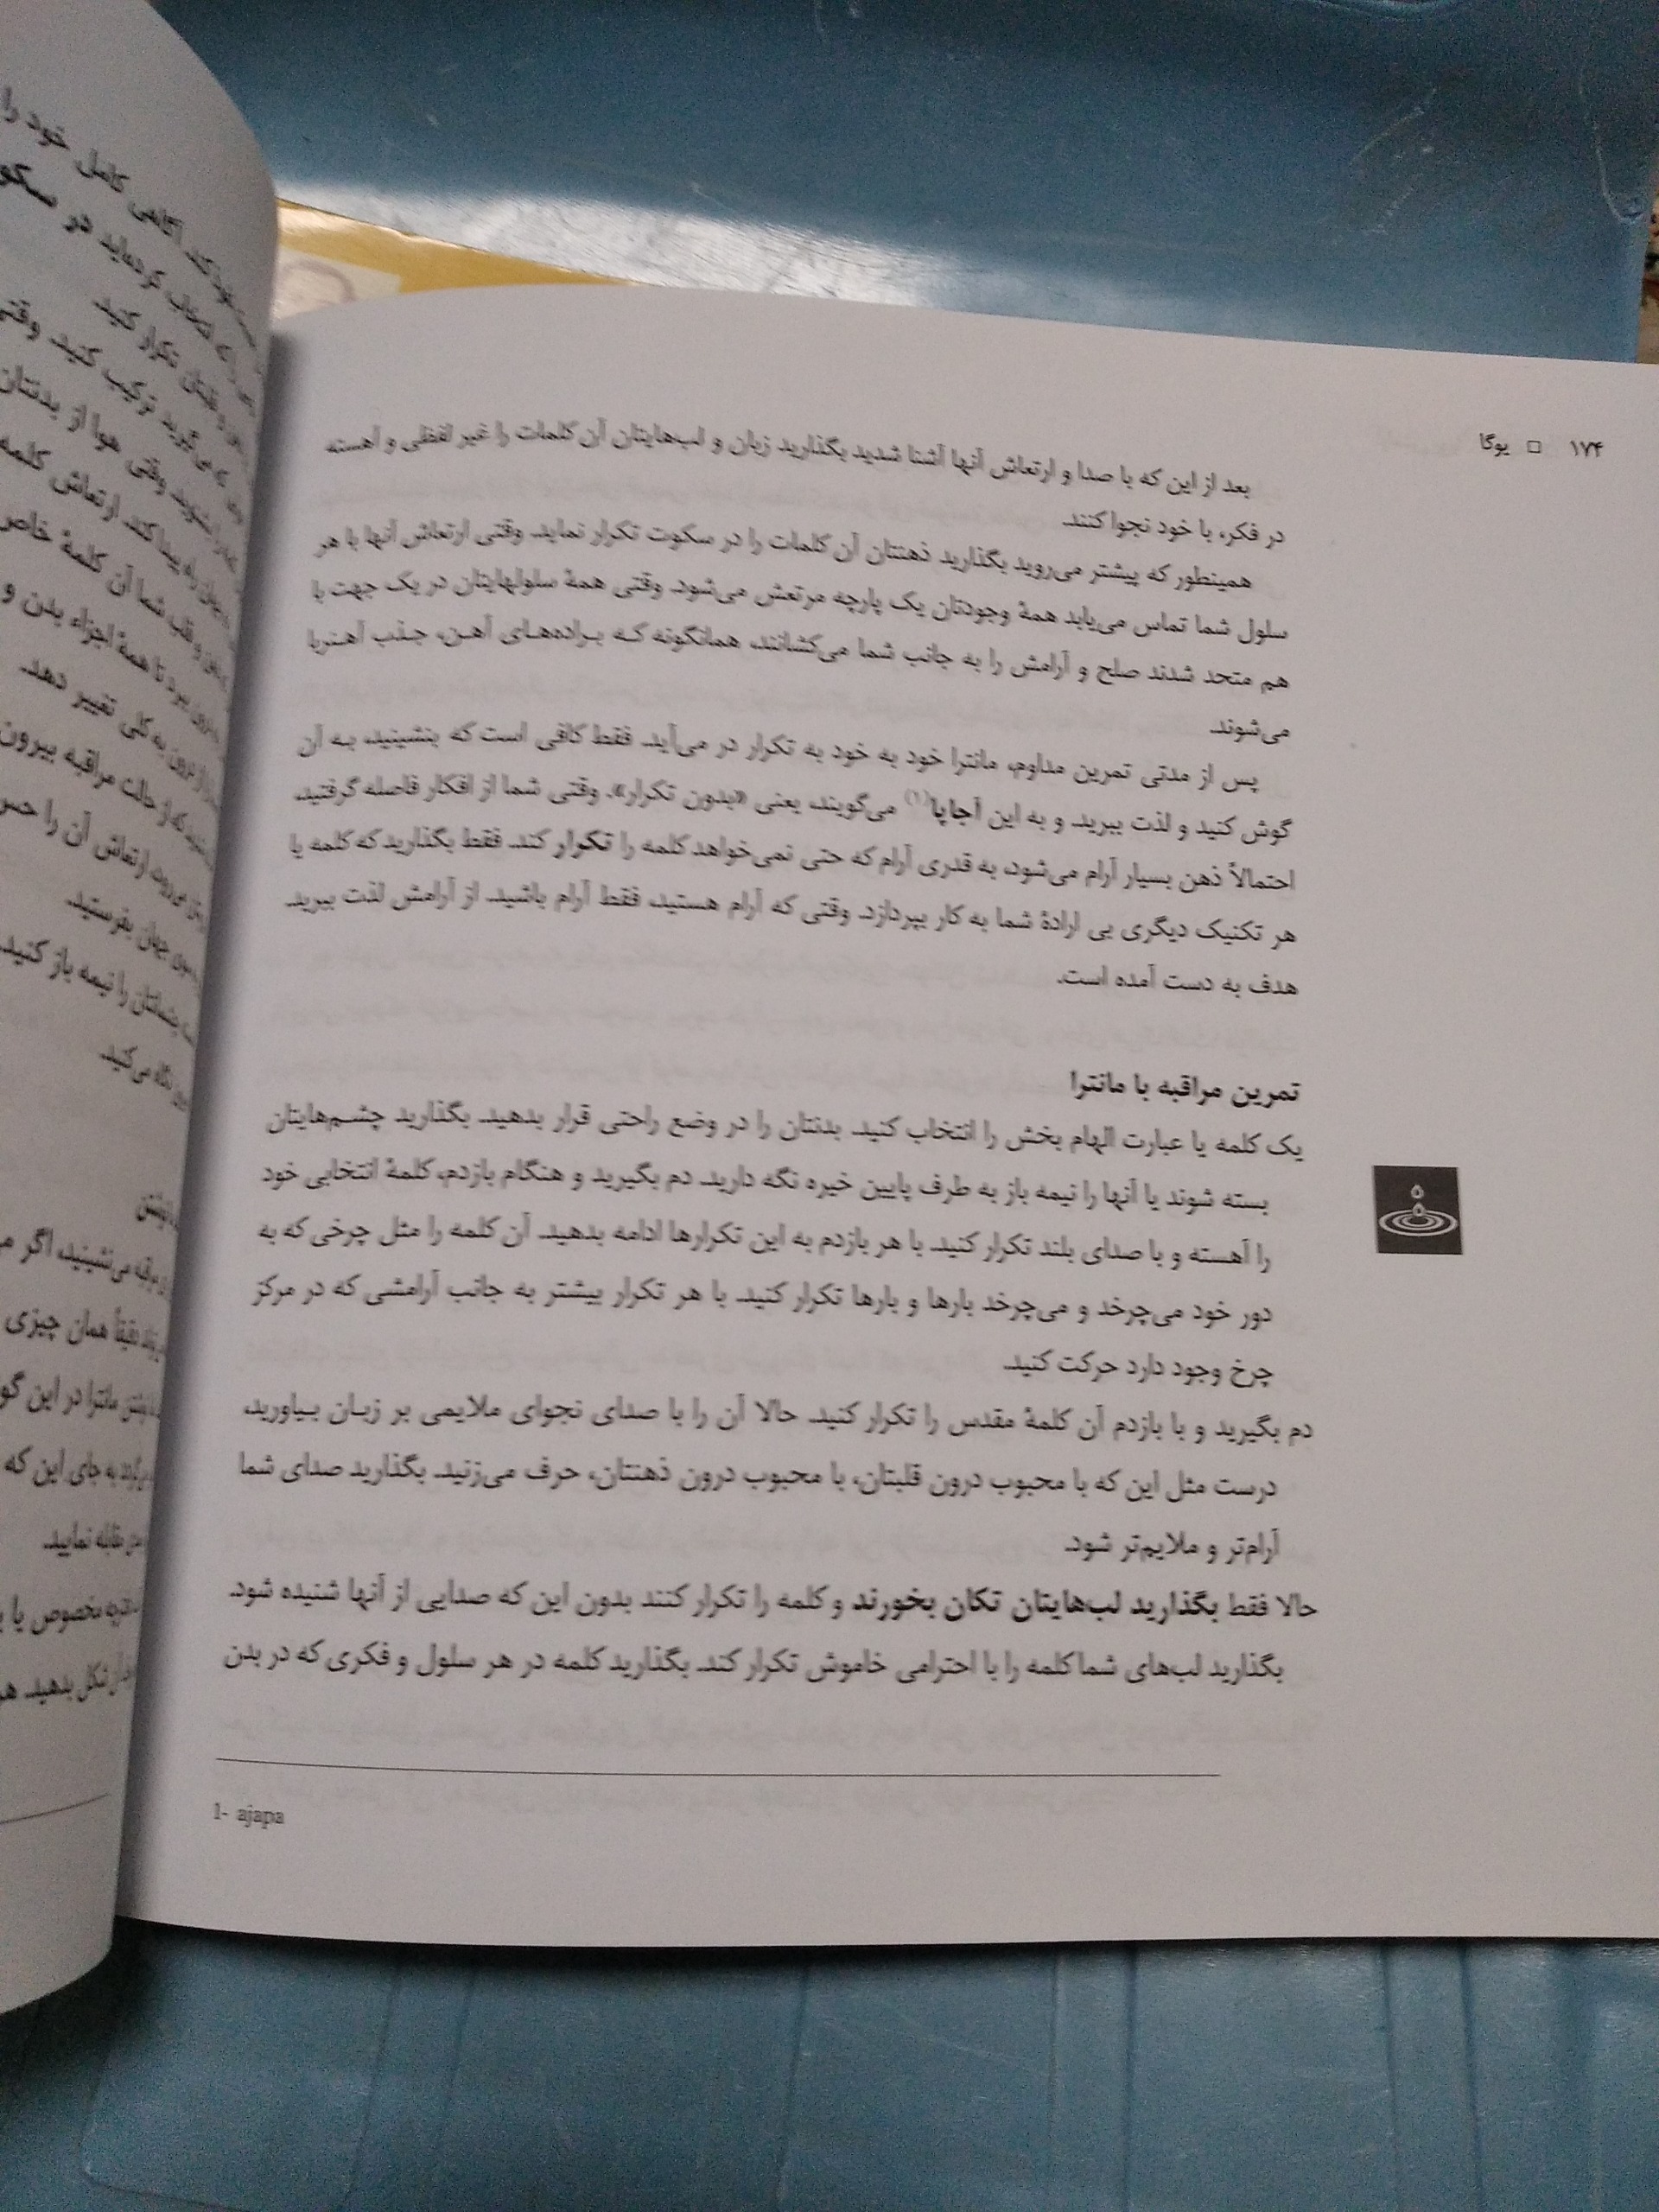 ۱۷۴ □ یوگا
بعد از این که با صدا و ارتعاش آنها آشنا شدید بگذارید زبان و لب‌هایتان آن کلمات را غیر لفظی و آهسته
در فکر، با خود نجوا کنند.
همینطور که پیشتر می‌روید بگذارید ذهنتان آن کلمات را در سکوت تکرار نماید. وقتی ارتعاش آنها با هر
سلول شما تماس می‌یابد همهٔ وجودتان یک پارچه مرتعش می‌شود. وقتی همهٔ سلولهایتان در یک جهت با
هم متحد شدند صلح و آرامش را به جانب شما می‌کشانند، همانگونه که براده‌های آهن، جذب آهنربا
می‌شوند.
پس از مدتی تمرین مداوم، مانترا خود به خود به تکرار در می‌آید. فقط کافی است که بنشینید، به آن
گوش کنید و لذت ببرید. و به این آجاپا(۱) می‌گویند، یعنی «بدون تکرار». وقتی شما از افکار فاصله گرفتید،
احتمالاً ذهن بسیار آرام می‌شود، به قدری آرام که حتی نمی‌خواهد کلمه را تکرار کند. فقط بگذارید که کلمه یا
هر تکنیک دیگری بی ارادهٔ شما به کار بپردازد. وقتی که آرام هستید، فقط آرام باشید. از آرامش لذت ببرید.
هدف به دست آمده است.
تمرین مراقبه با مانترا
یک کلمه یا عبارت الهام بخش را انتخاب کنید. بدنتان را در وضع راحتی قرار بدهید. بگذارید چشم‌هایتان
بسته شوند یا آنها را نیمه باز به طرف پایین خیره نگه دارید. دم بگیرید و هنگام بازدم، کلمهٔ انتخابی خود
را آهسته و با صدای بلند تکرار کنید. با هر بازدم به این تکرارها ادامه بدهید. آن کلمه را مثل چرخی که به
دور خود می‌چرخد و می‌چرخد بارها و بارها تکرار کنید. با هر تکرار بیشتر به جانب آرامشی که در مرکز
چرخ وجود دارد حرکت کنید.
دم بگیرید و با بازدم آن کلمهٔ مقدس را تکرار کنید. حالا آن را با صدای نجوای ملایمی بر زبان بیاورید،
درست مثل این که با محبوب درون قلبتان، با محبوب درون ذهنتان، حرف می‌زنید. بگذارید صدای شما
آرام‌تر و ملایم‌تر شود.
حالا فقط بگذارید لب‌هایتان تکان بخورند و کلمه را تکرار کنند بدون این که صدایی از آنها شنیده شود.
بگذارید لب‌های شما کلمه را با احترامی خاموش تکرار کند. بگذارید کلمه در هر سلول و فکری که در بدن
1- ajapa
آگاهی کامل خود را
که انتخاب کرده‌اید در
تکرار کنید
که می‌گیرید ترکیب کنید. وقتی
بشنوید. وقتی هوا از بدنتان
راه پیدا کند. ارتعاش کلمه
و قلب شما آن کلمهٔ خاص
ببرد تا همهٔ اجزاء بدن و
به کلی تغییر دهد.
که از حالت مراقبه بیرون
می‌رود، ارتعاش آن را حس
جهان بفرستید.
را نیمه باز کنید.
نگاه می‌کنید.
نوشتن
مراقبه می‌نشینید، اگر
دقیقاً همان چیزی
مانترا در این
به جای این که
مقابله نمایید.
مخصوص یا
شکل بدهید. هر